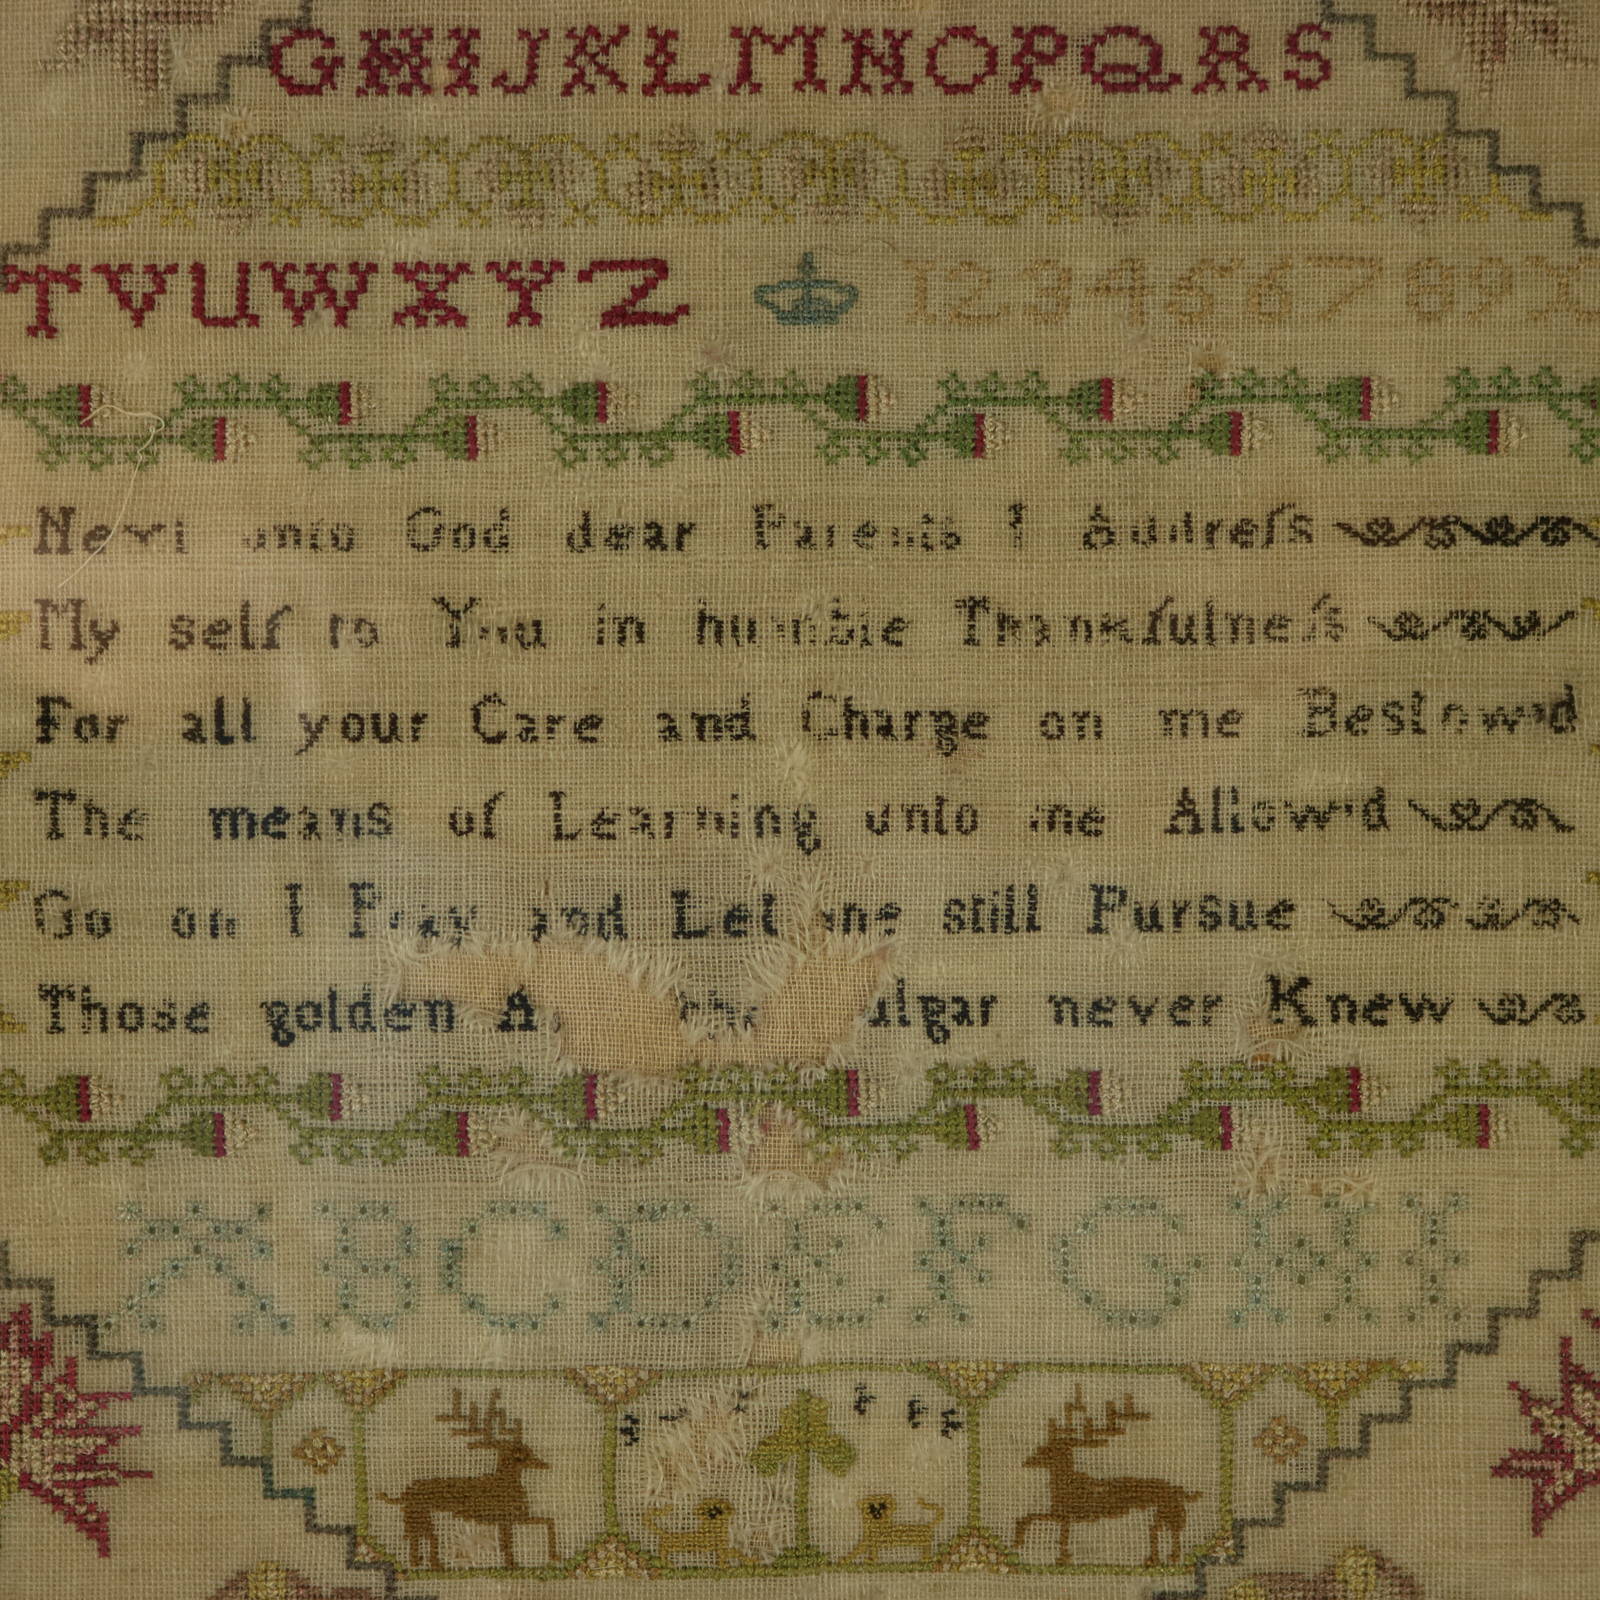 GHIJKLMNOPQRS
TVUWXYZ 123456789X
Next unto God dear Parents I Addreſs
My self to You in humble Thankfulneſs
For all your Care and Charge on me Bestow'd
The means of Learning unto me Allow'd
Go on I Pray and Let me still Pursue
Those golden never Knew
ABCDEFGHI